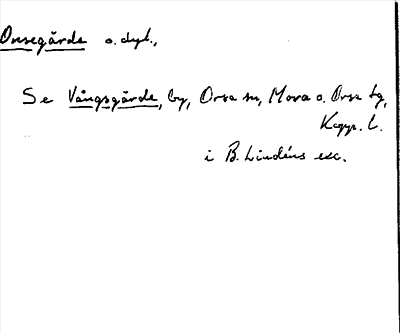 Onsegärde o. dyl.,
Se Vångsgärde, by, Orsa sn, Mora o. Orsa tg,
Kopp. l.
i B. Lindéns exc.